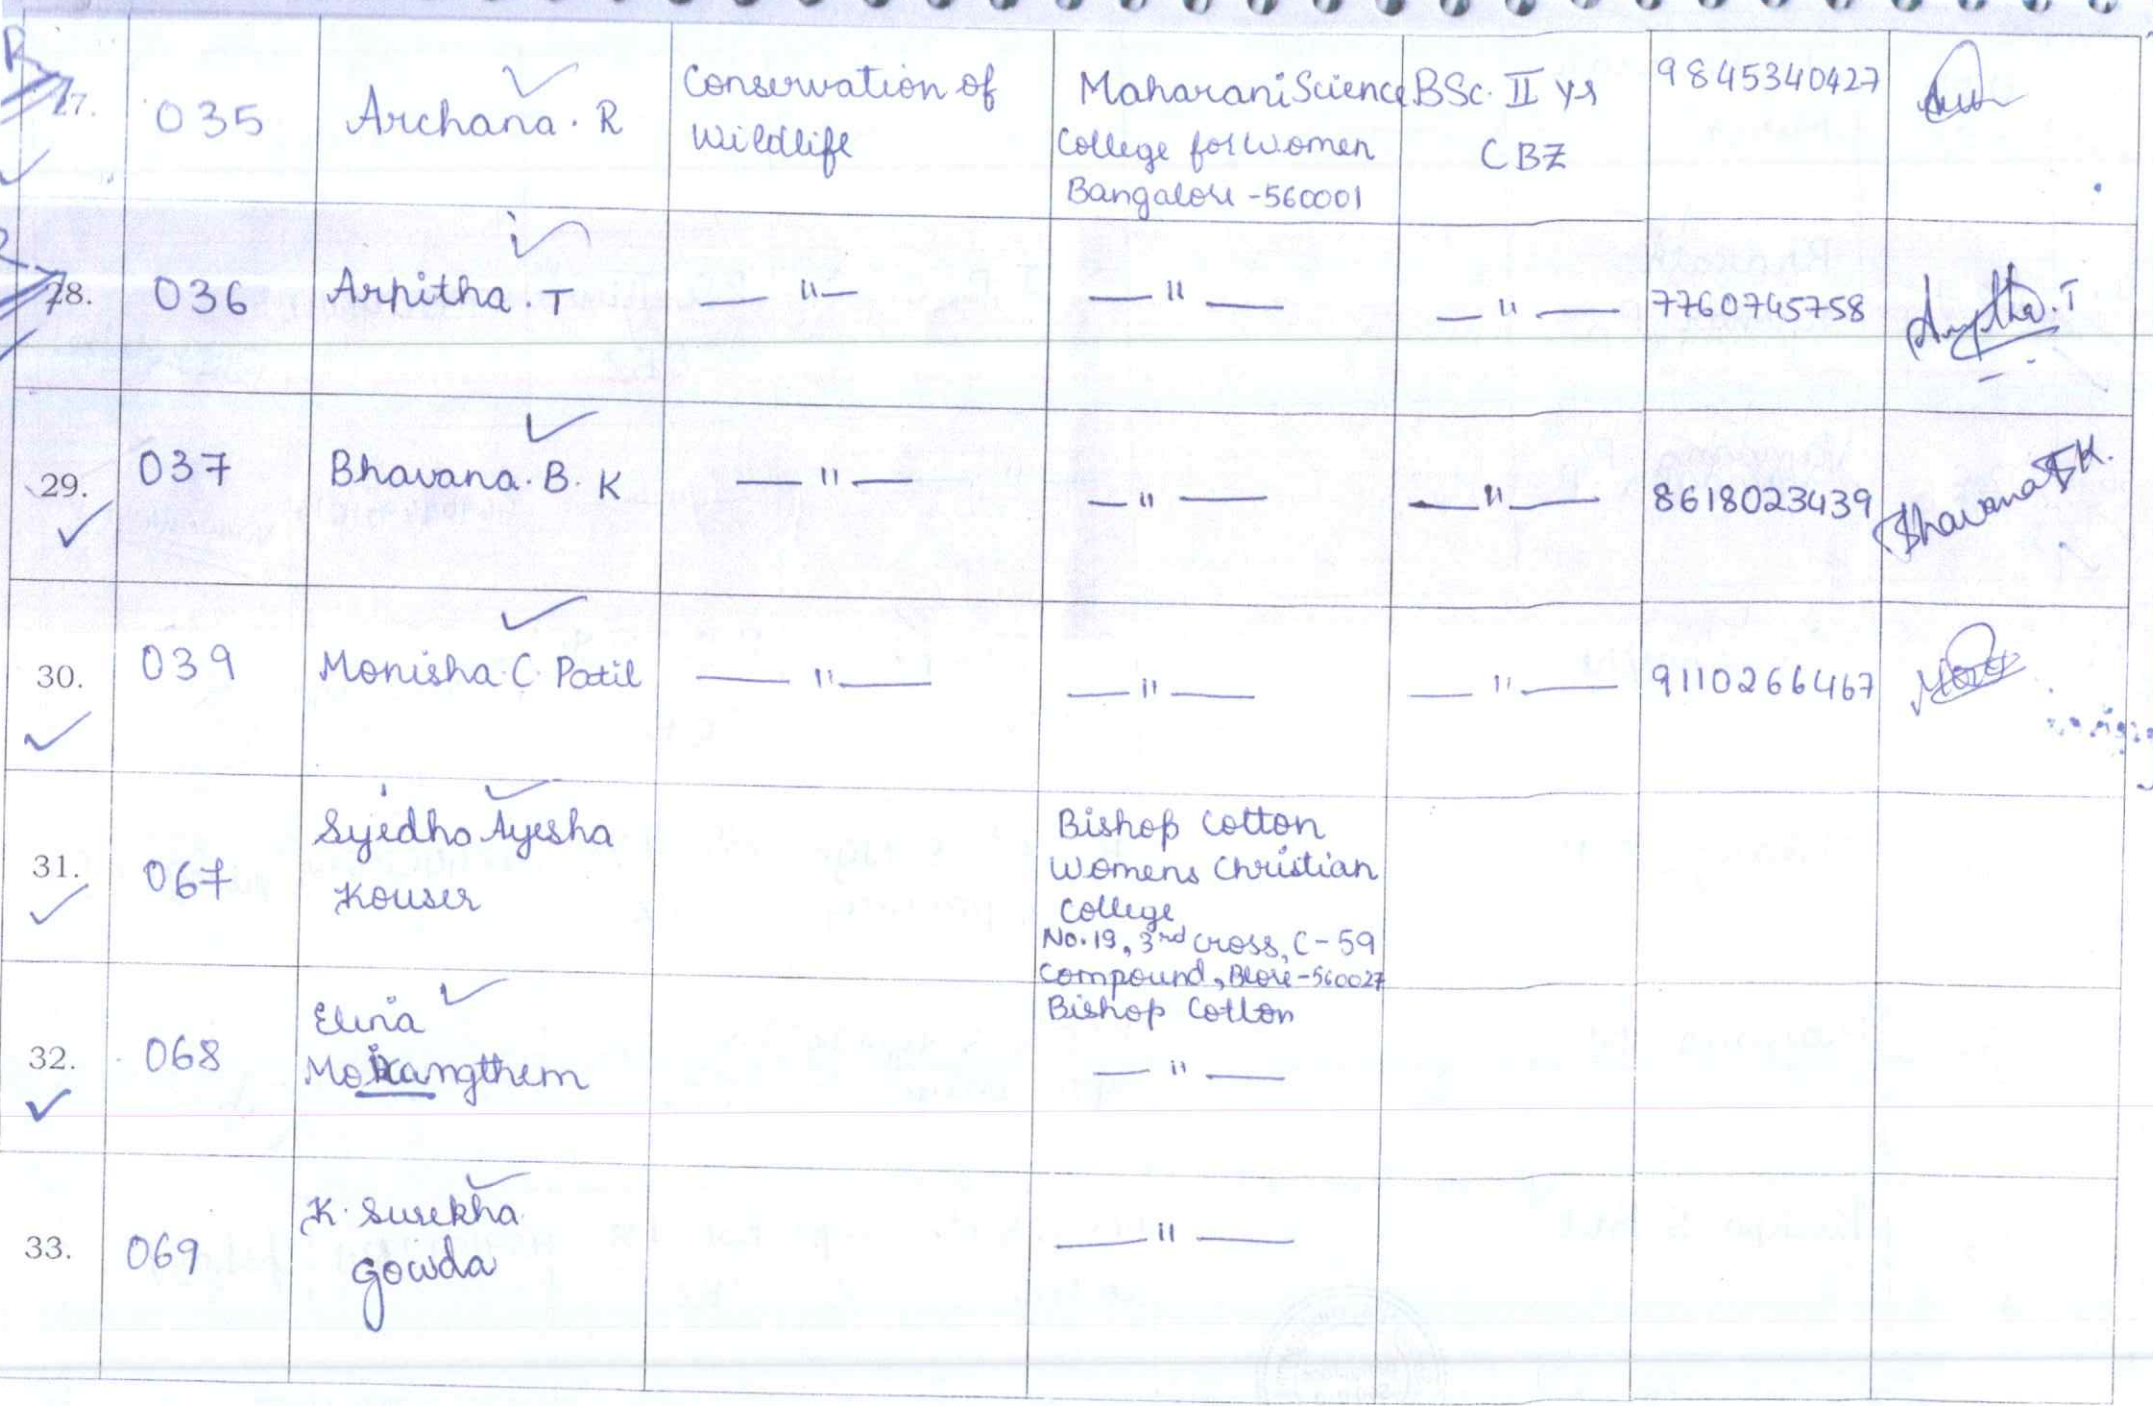 27. 035 Archana. R Conservation of Wildlife Maharani Science College for Women Bangalore -560001 BSc. II yr CBZ 9845340427
28. 036 Arpitha. T — " — — " — — " — 7760745758 Arpitha.T
29. 037 Bhavana. B. K — " — — " — — " — 8618023439 Bhavana B K.
30. 039 Monisha. C Patil — " — — " — — " — 9110266467
31. 067 Syedha Ayesha Kouser Bishop Cotton Womens Christian College No. 19, 3rd cross, C-59 Compound, Blore-560027
32. 068 Elina Moirangthem Bishop Cotton — " —
33. 069 K. Surekha Gowda — " —